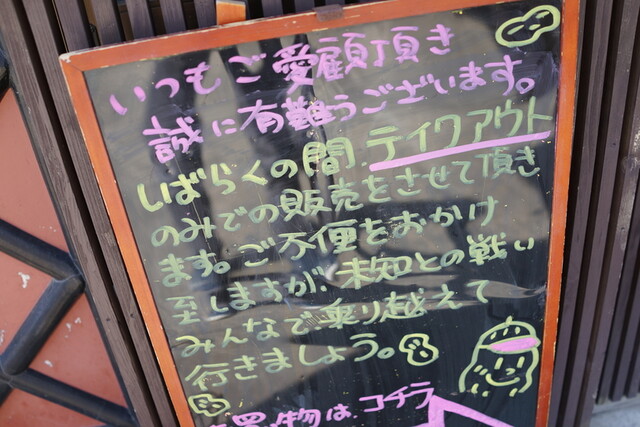 いつもご愛顧頂き
誠に有難うございます。
しばらくの間 テイクアウト
のみでの販売をさせて頂き
ます。ご不便をおかけ
至しますが、未知との戦い
みんなで乗り越えて
行きましょう。
買物は、コチラ